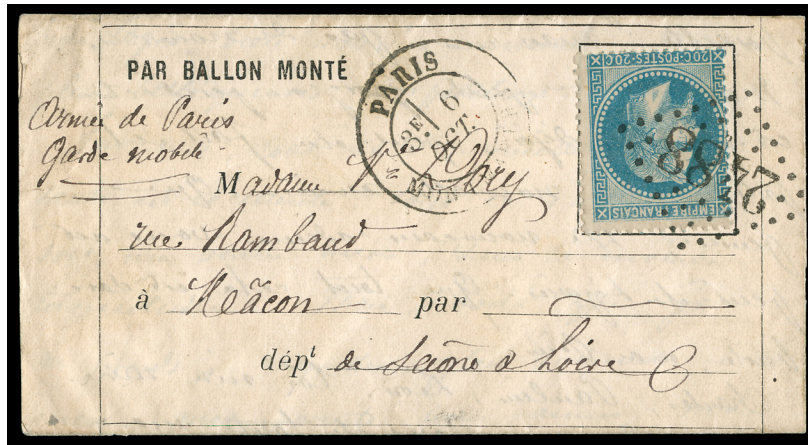 PAR BALLON MONTÉ
PARIS
3E
6
OCT.
20C·POSTES·20C
EMPIRE FRANÇAIS
2488
Armée de Paris
Garde mobile
Madame Vve
rue Rambaud
à Mâcon par
dépt de Saône & Loire